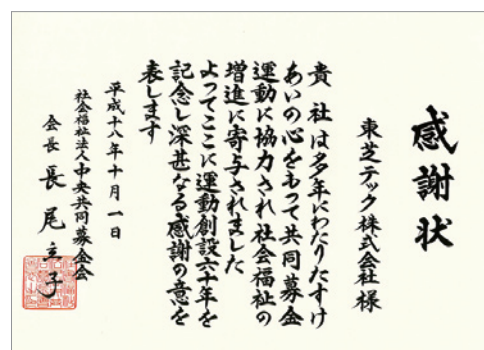 感謝状
東芝テック株式会社様
貴社は多年にわたりたすけ
あいの心をもって共同募金
運動に協力され社会福祉の
増進に寄与されました
よってここに運動創設六十年を
記念し深甚なる感謝の意を
表します
平成十八年十月一日
社会福祉法人中央共同募金会
会長 長尾立子